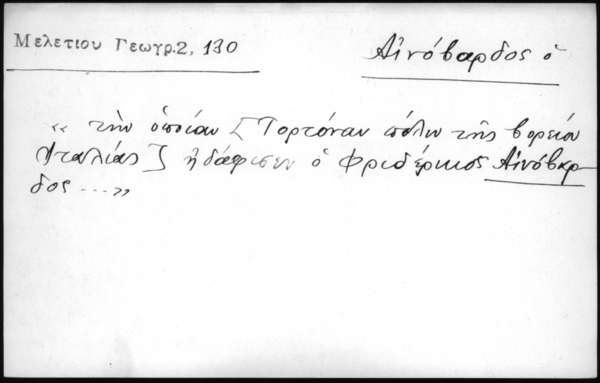 Μελετίου Γεωγρ.2, 130
Αἰνόβαρδος ὁ
« τὴν ὁποίαν [Τορτόναν πόλιν τῆς βορείου
Ἰταλίας] ἠδάφισεν ὁ Φριδέρικος Αἰνόβαρ-
δος ... »